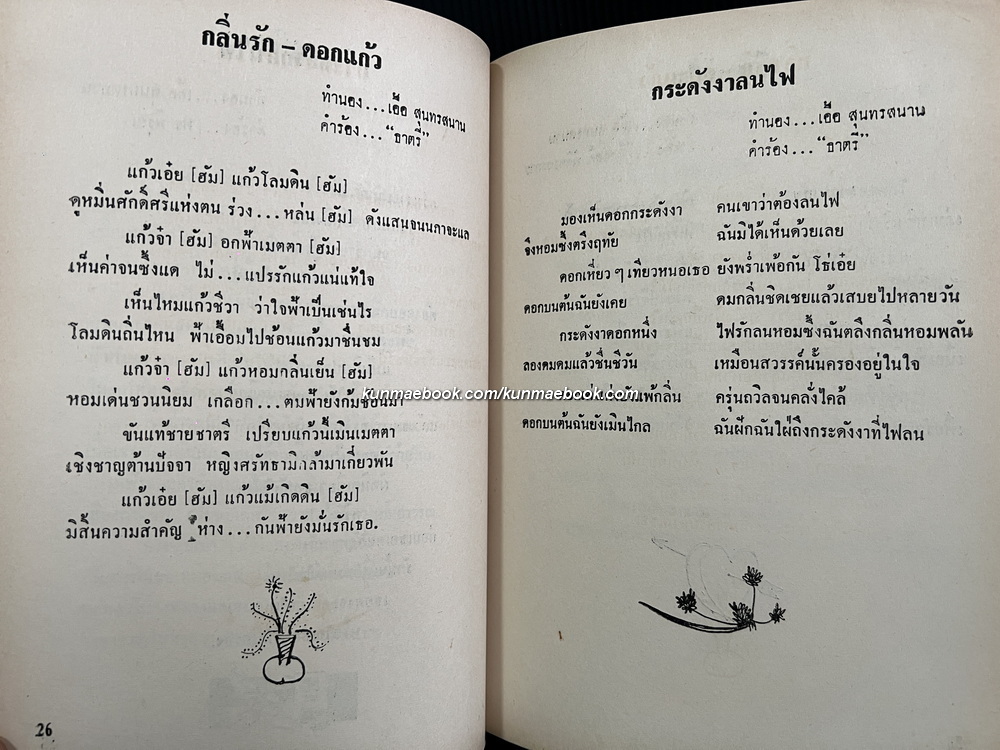 กลิ่นรัก – ดอกแก้ว
ทำนอง...เอื้อ สุนทรสนาน
คำร้อง..."ธาตรี"
แก้วเอ๋ย [ฮัม] แก้วโลมดิน [ฮัม]
ดูหมิ่นศักดิ์ศรีแห่งตน ร่วง...หล่น [ฮัม] ดังแสนจนนภาจะแล
แก้วจ๋า [ฮัม] อกฟ้าเมตตา [ฮัม]
เห็นค่าจนซึ้งแด ไม่...แปรรักแก้วแน่แท้ใจ
เห็นไหมแก้วชีวา ว่าใจฟ้าเป็นเช่นไร
โลมดินถิ่นไหน ฟ้าเอื้อมไปช้อนแก้วมาชื่นชม
แก้วจ๋า [ฮัม] แก้วหอมกลิ่นเย็น [ฮัม]
หอมเด่นชวนนิยม เกลือก...ตมฟ้ายังก้มช้อนมา
ขันแท้ชายชาตรี เปรียบแก้วนี้เมินเมตตา
เชิงชาญต้านปัจจา หญิงศรัทธามิกล้ามาเกี่ยวพัน
แก้วเอ๋ย [ฮัม] แก้วแม้เกิดดิน [ฮัม]
มิสิ้นความสำคัญ ห่าง...กันฟ้ายังมั่นรักเธอ.
26
กระดังงาลนไฟ
ทำนอง...เอื้อ สุนทรสนาน
คำร้อง..."ธาตรี"
มองเห็นดอกกระดังงา คนเขาว่าต้องลนไฟ
จึงหอมซึ้งตรึงฤทัย ฉันมิได้เห็นด้วยเลย
ดอกเหี่ยว ๆ เทียวหนอเธอ ยังพร่ำเพ้อกัน โธ่เอ๋ย
ดอกบนต้นฉันยังเคย ดมกลิ่นชิดเชยแล้วเสบยไปหลายวัน
กระดังงาดอกหนึ่ง ไฟรักลนหอมซึ้งฉันตลึงกลิ่นหอมพลัน
ลองดมดมแล้วชื่นชีวัน เหมือนสวรรค์นั้นครองอยู่ในใจ
แพ้กลิ่น ครุ่นถวิลจนคลั่งไคล้
ดอกบนต้นฉันยังเมินไกล ฉันฝักฉันใฝ่ถึงกระดังงาที่ไฟลน
kunmaebook.com/kunmaebook.com